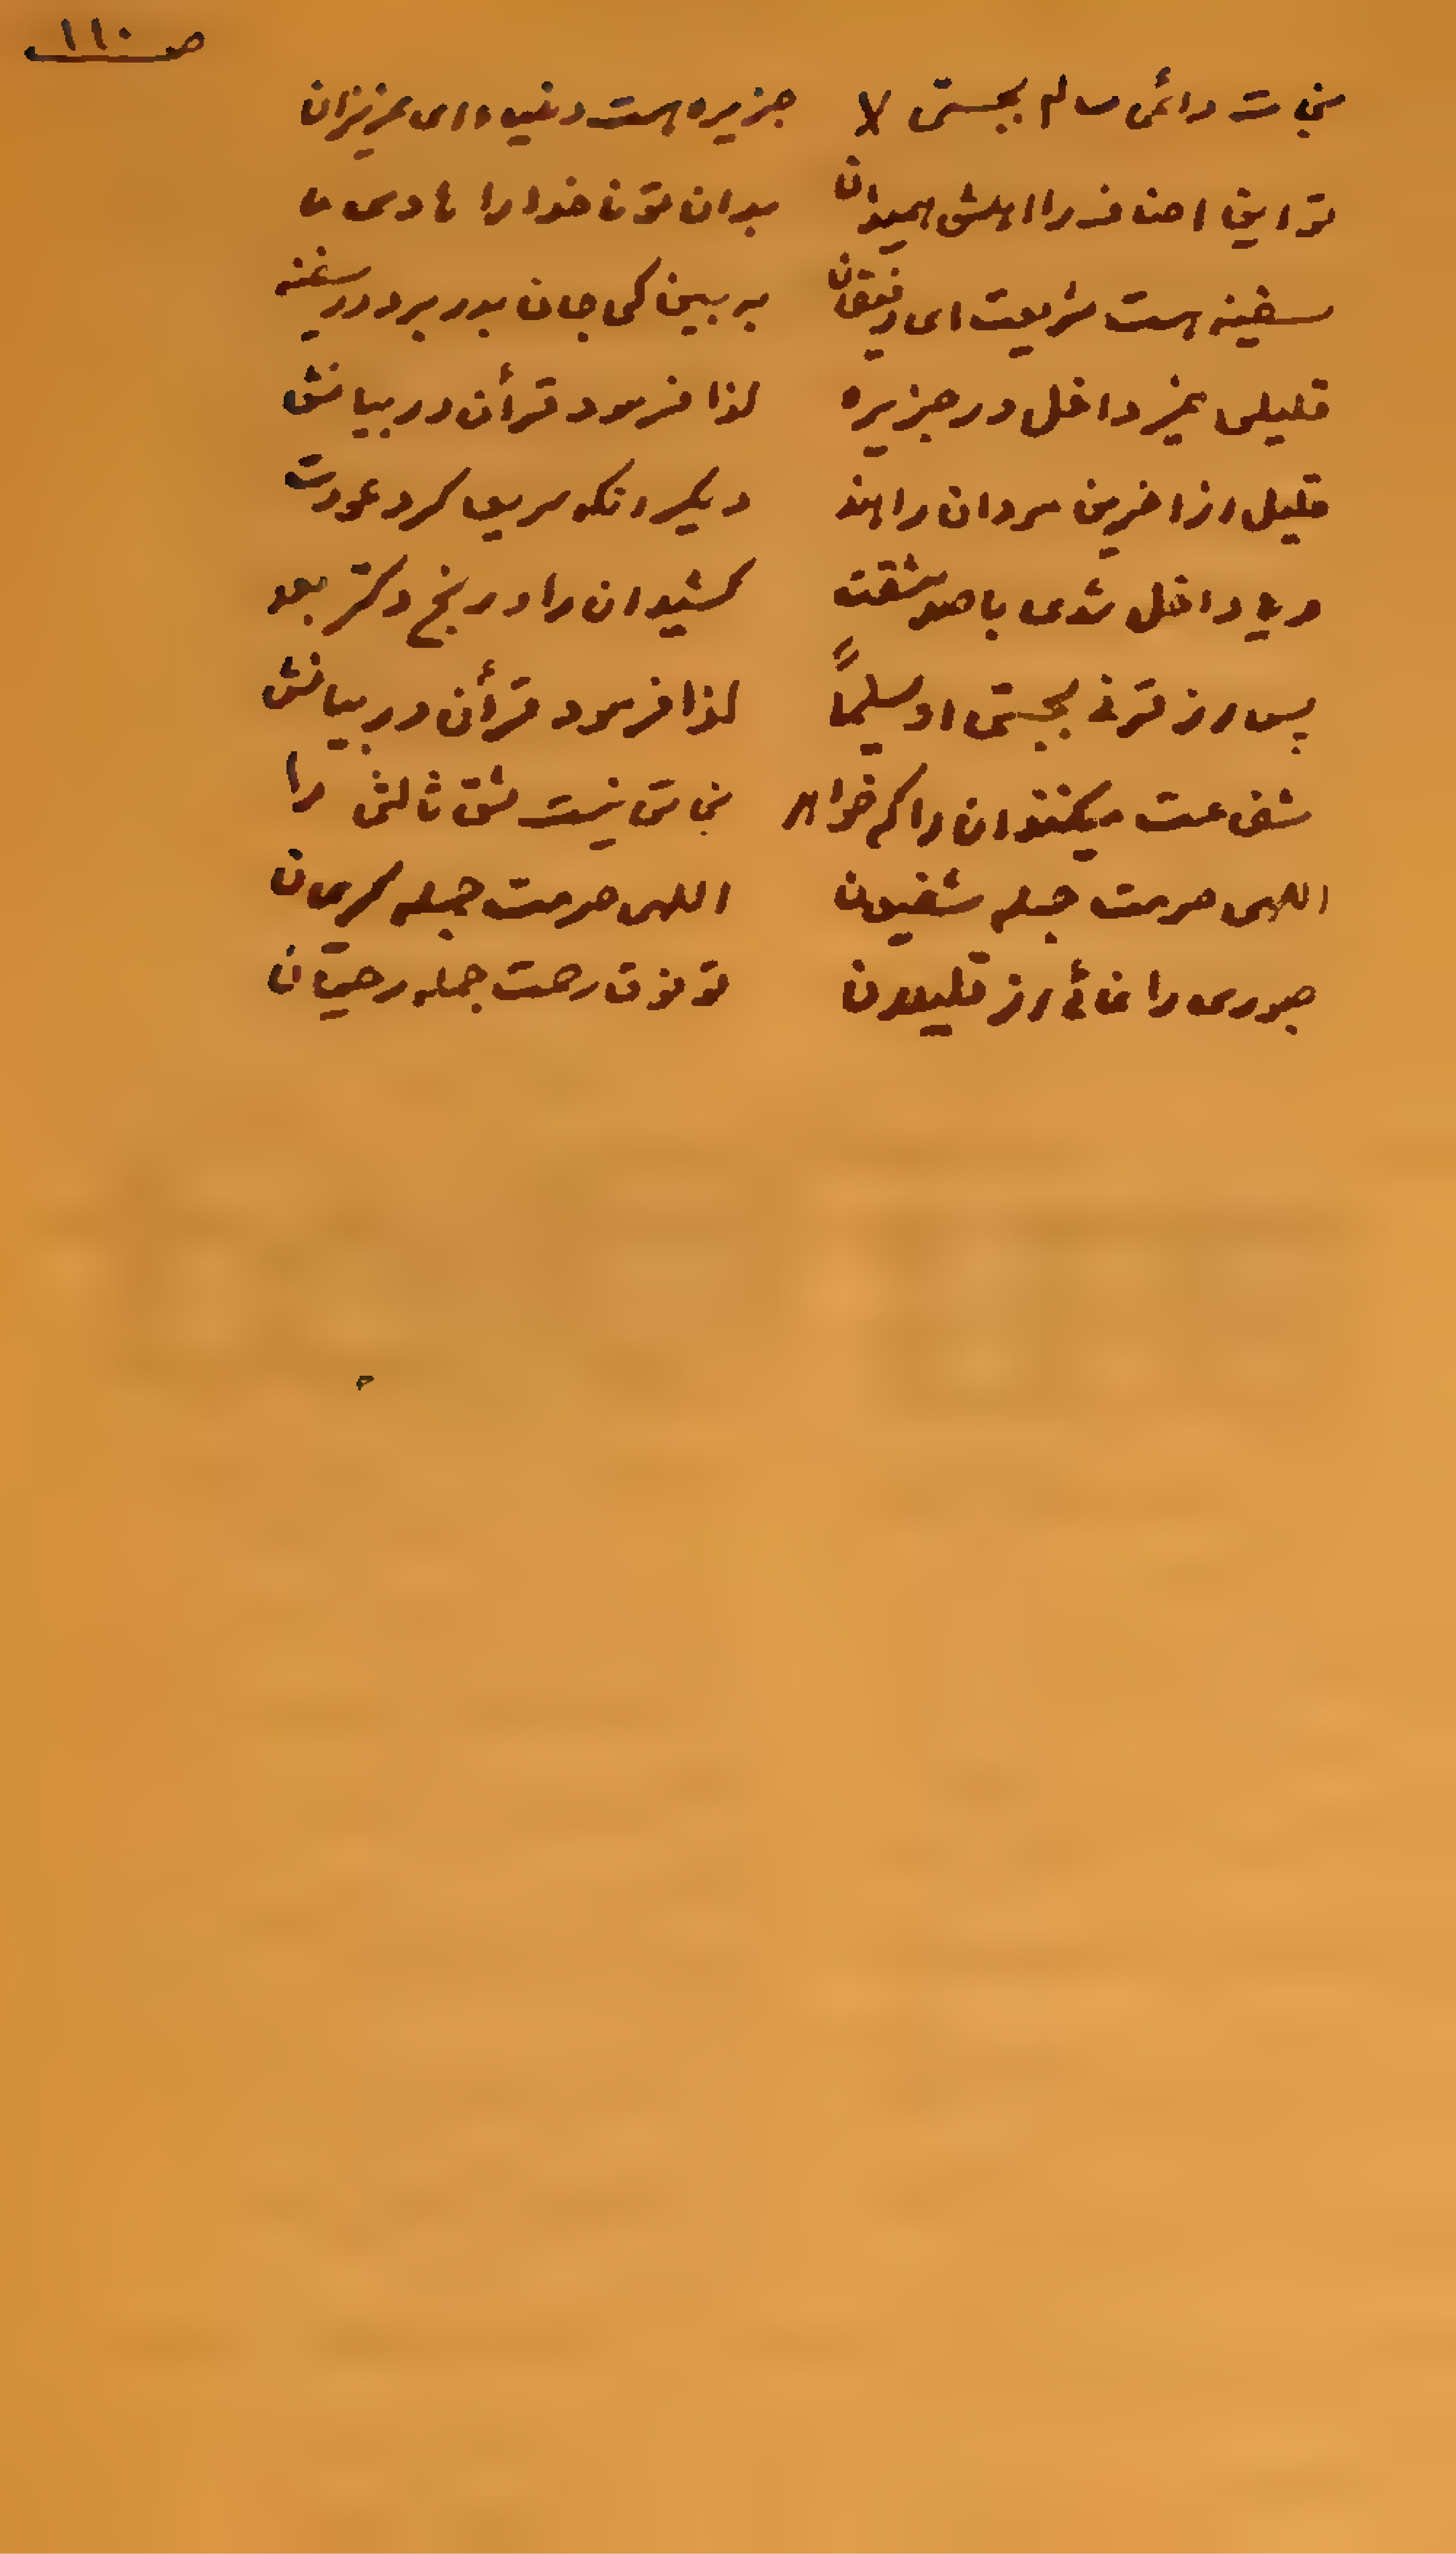 صـ ١١٠
نجات دائمی سالم بجستی لا جزیره هست دنیا ای عزیزان
تو این اصناف را اهلش همیدان بدان تو ناخدا را هادی ما
سفینه هست شریعت ای رفیقان به ببین کی جان بدر برد در سفینه
قلیلی غیر داخل در جزیره لذا فرمود قرآن در بیانش
قلیل از اخرین مردان راهند دیگر انکه کرد عودت
داخل شدی با صد مشقت کشید ان را در رنج و بعد
پس از قرنی بجستی او سلیماً لذا فرمود قرآن در بیانش
شفاعت میکنند ان را کر خواهد نجاتی نیست شق ثالثی را
اللهی حرمت جمله شفیعان اللهی حرمت جمله کریمان
صبوری را از قلیلان تو رحمت جمله